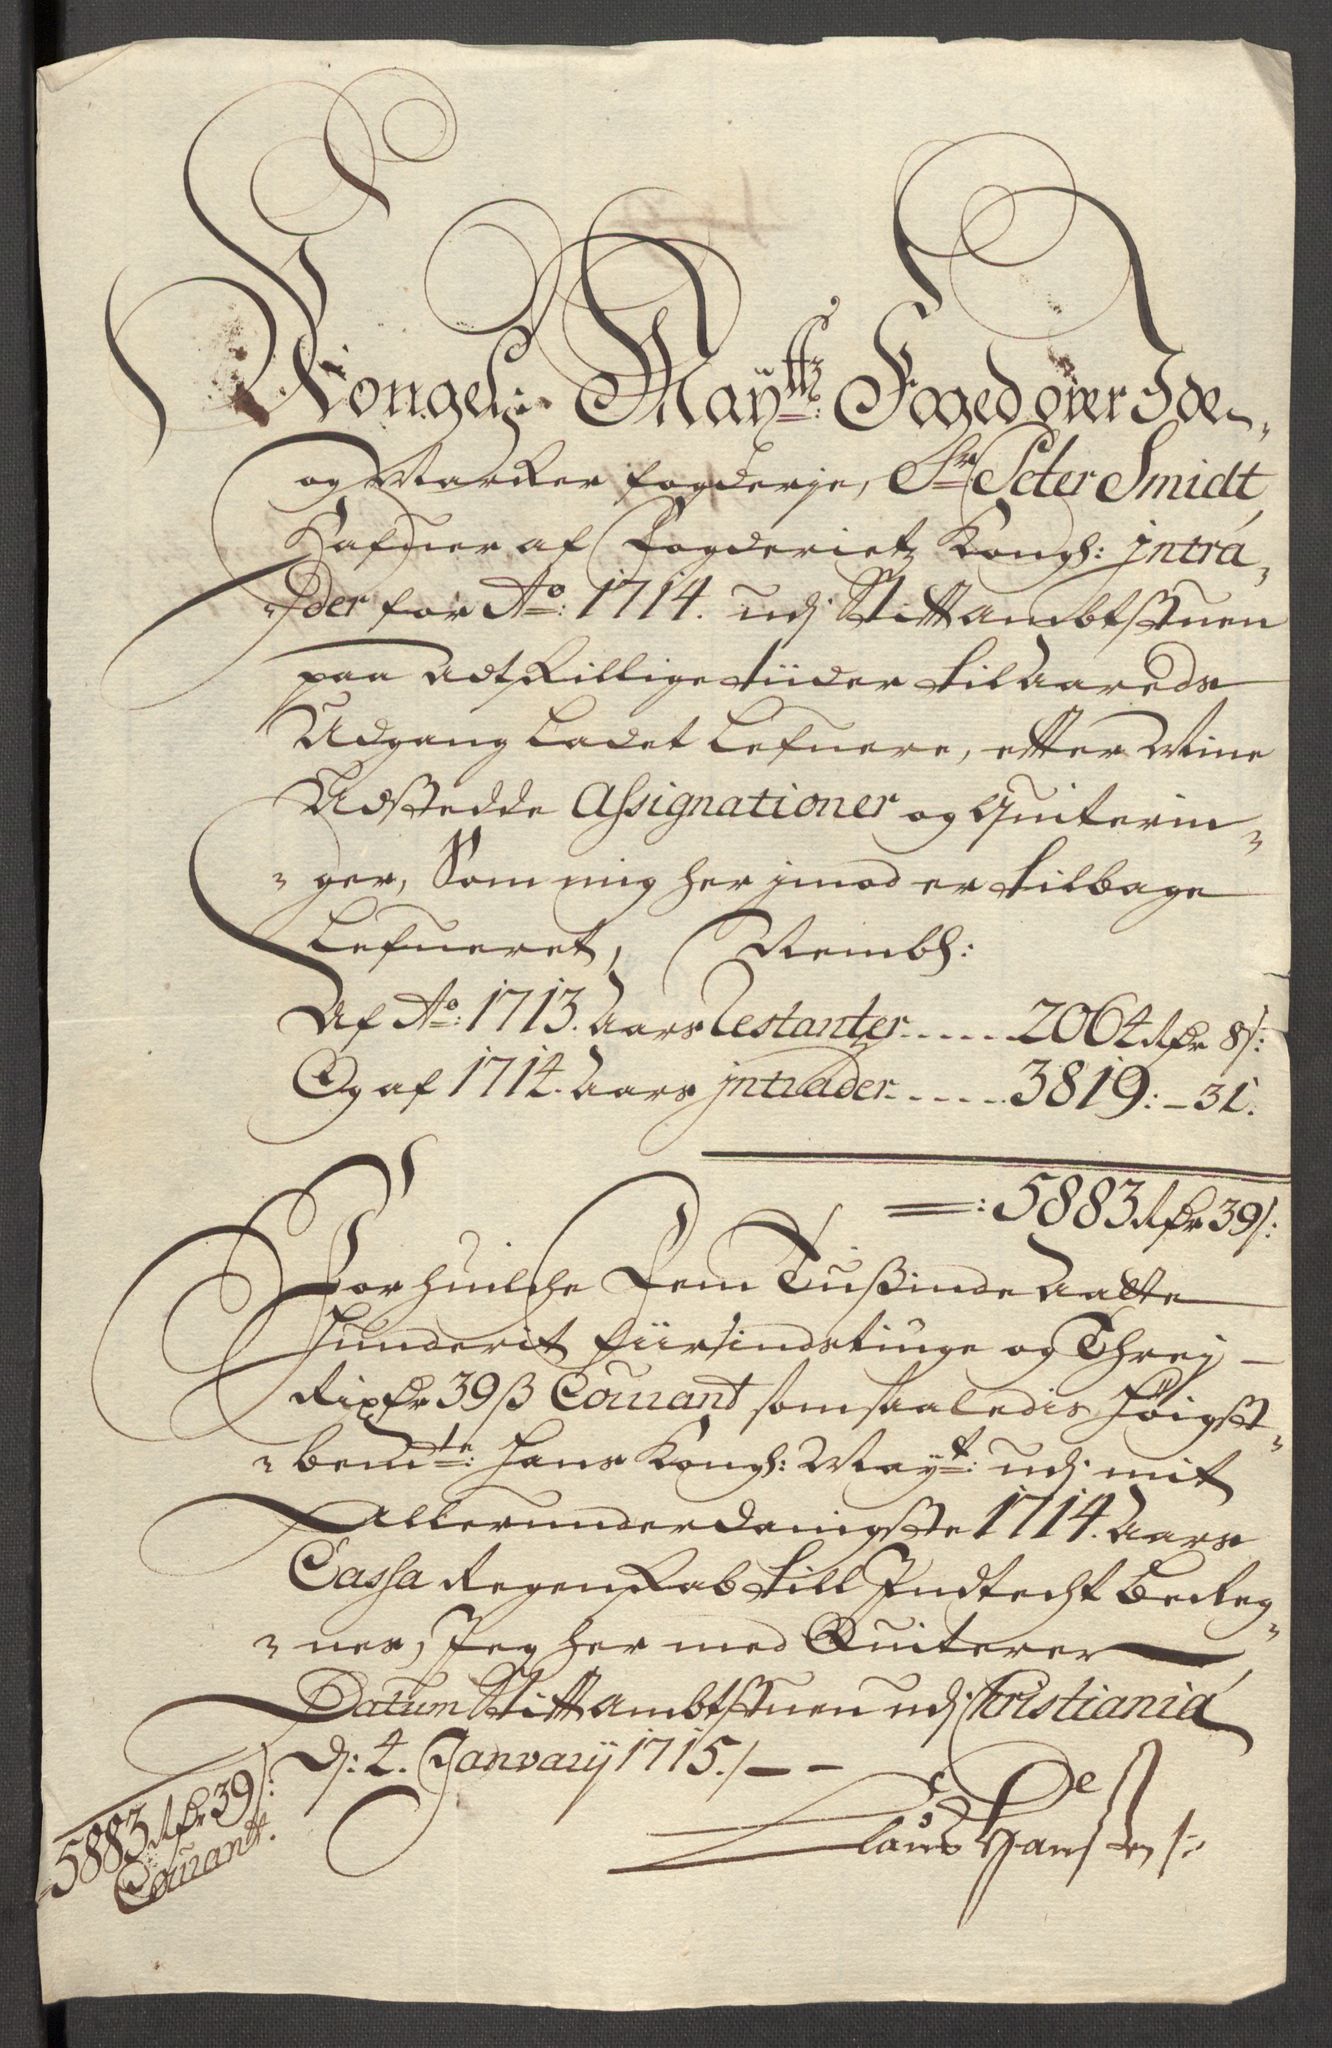 Kongel: Mayttz: Foged over Ide-
og Marker fogderje, Sr Peter Smidt,
Hafuer af Fogderietz Kongl: jntra-
-der for Ao: 1714. udj Stifft Ambtstuen
paa adtskillige tiider til Aaredz
Udgang ladet lefuere, efter Mine
Udstedde Assignationer og Quiterin-
-ger, Som mig her jmod er tilbage
lefueret, Nembl:
Af Ao: 1713. Aars Restantzer..... 2064 Rdr 8s:
Og af 1714. Aars jntrader...... 3819: - 31.
=: 5883 Rdr 39s:
For huilche Fem Tußinde Aatte
Hunderit fiirsindstiuge og Threj -
Rixdr 39ß Courant som saaledis høigst-
-bemte: Hans Kongl: Mayt: udj mit
Allerunderdanigste 1714. Aars
Cassa Regenskab till Indtecht bereg-
-nes, Jeg her med Quiterer
Datum Stifft Ambtstuen udj Cristiania
D: 4. January 1715./ - -
Claus Hansen
5883 Rdr 39s:
Courant.